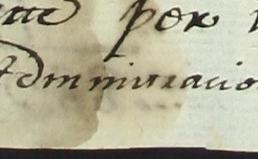 por
Administracio